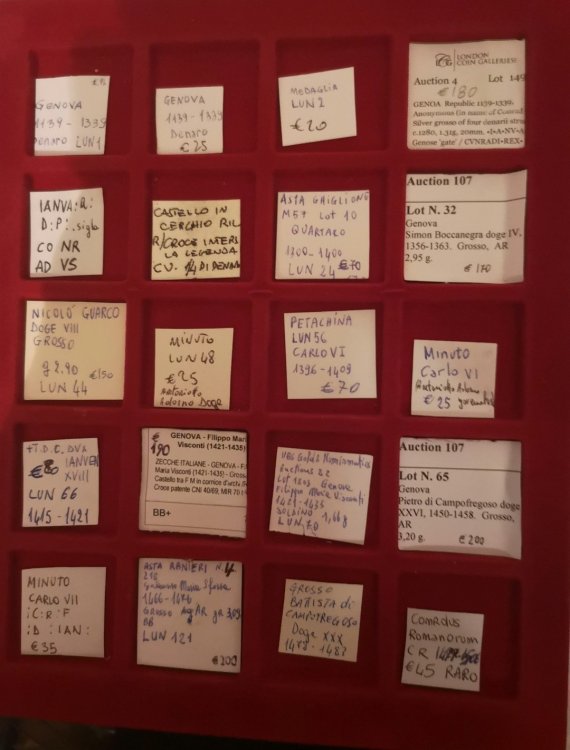 GENOVA
1139-1339
Denaro LUN 1
GENOVA
1139-1339
Denaro
€ 25
MEDAGLIA
LUN 2
€ 20
LONDON
COIN GALLERIES
Auction 4 Lot 149
€180
GENOA Republic 1139-1339.
Anonymous (in name of Conrad
Silver grosso of four denarii
c.1280, 1.51g, 20mm. +I•A•NV•A
Genose 'gate' / CVNRADI•REX•
IANVA:R:
D:P: sigla
CO NR
AD VS
CASTELLO IN
CERCHIO RIL
R/CROCE INTERS
LA LEGENDA
CU. 1/4 DI DENARO
ASTA GHIGLIONE
ME7 Lot 10
QUARTARO
1200-1400
LUN 24 €70
Auction 107
Lot N. 32
Genova
Simon Boccanegra doge IV,
1356-1363. Grosso, AR
2,95 g.
€ 170
NICOLÓ GUARCO
DOGE VIII
GROSSO
g 2.90 €150
LUN 44
MINUTO
LUN 48
€ 25
Antoniotto
Adorno Doge
PETACHINA
LUN 56
CARLO VI
1396-1409
€ 70
Minuto
Carlo VI
Antoniotto Adorno
€ 25
+T.D.C. DUX
€80 IANVEN
XVIII
LUN 66
1415-1421
€
190
GENOVA - Filippo Mari
Visconti (1421-1435)
ZECCHE ITALIANE - GENOVA - F
Maria Visconti (1421-1435) - Gross
Castello tra F M in cornice d'archi
Croce patente CNI 40/69; MIR 70
BB+
UBS Gold & Numismatics
Auctions 82
Lot 1803 Genova
Filippo Maria Visconti
1421-1435
SOLDINO 1,66g
LUN 70
Auction 107
Lot N. 65
Genova
Pietro di Campofregoso doge
XXVI, 1450-1458. Grosso,
AR
3,20 g. € 200
MINUTO
CARLO VII
:C:R:F
:D:IAN:
€ 35
ASTA RANIERI N. 4
218
Galeazzo Maria Sforza
1466-1476
GROSSO Ag AR gr 3,09
BB
LUN 121
€ 200
GROSSO
BATTISTA di
CAMPOFREGOSO
Doge XXX
1478-1483
Comradus
Romanorum
CR
€45 RARO